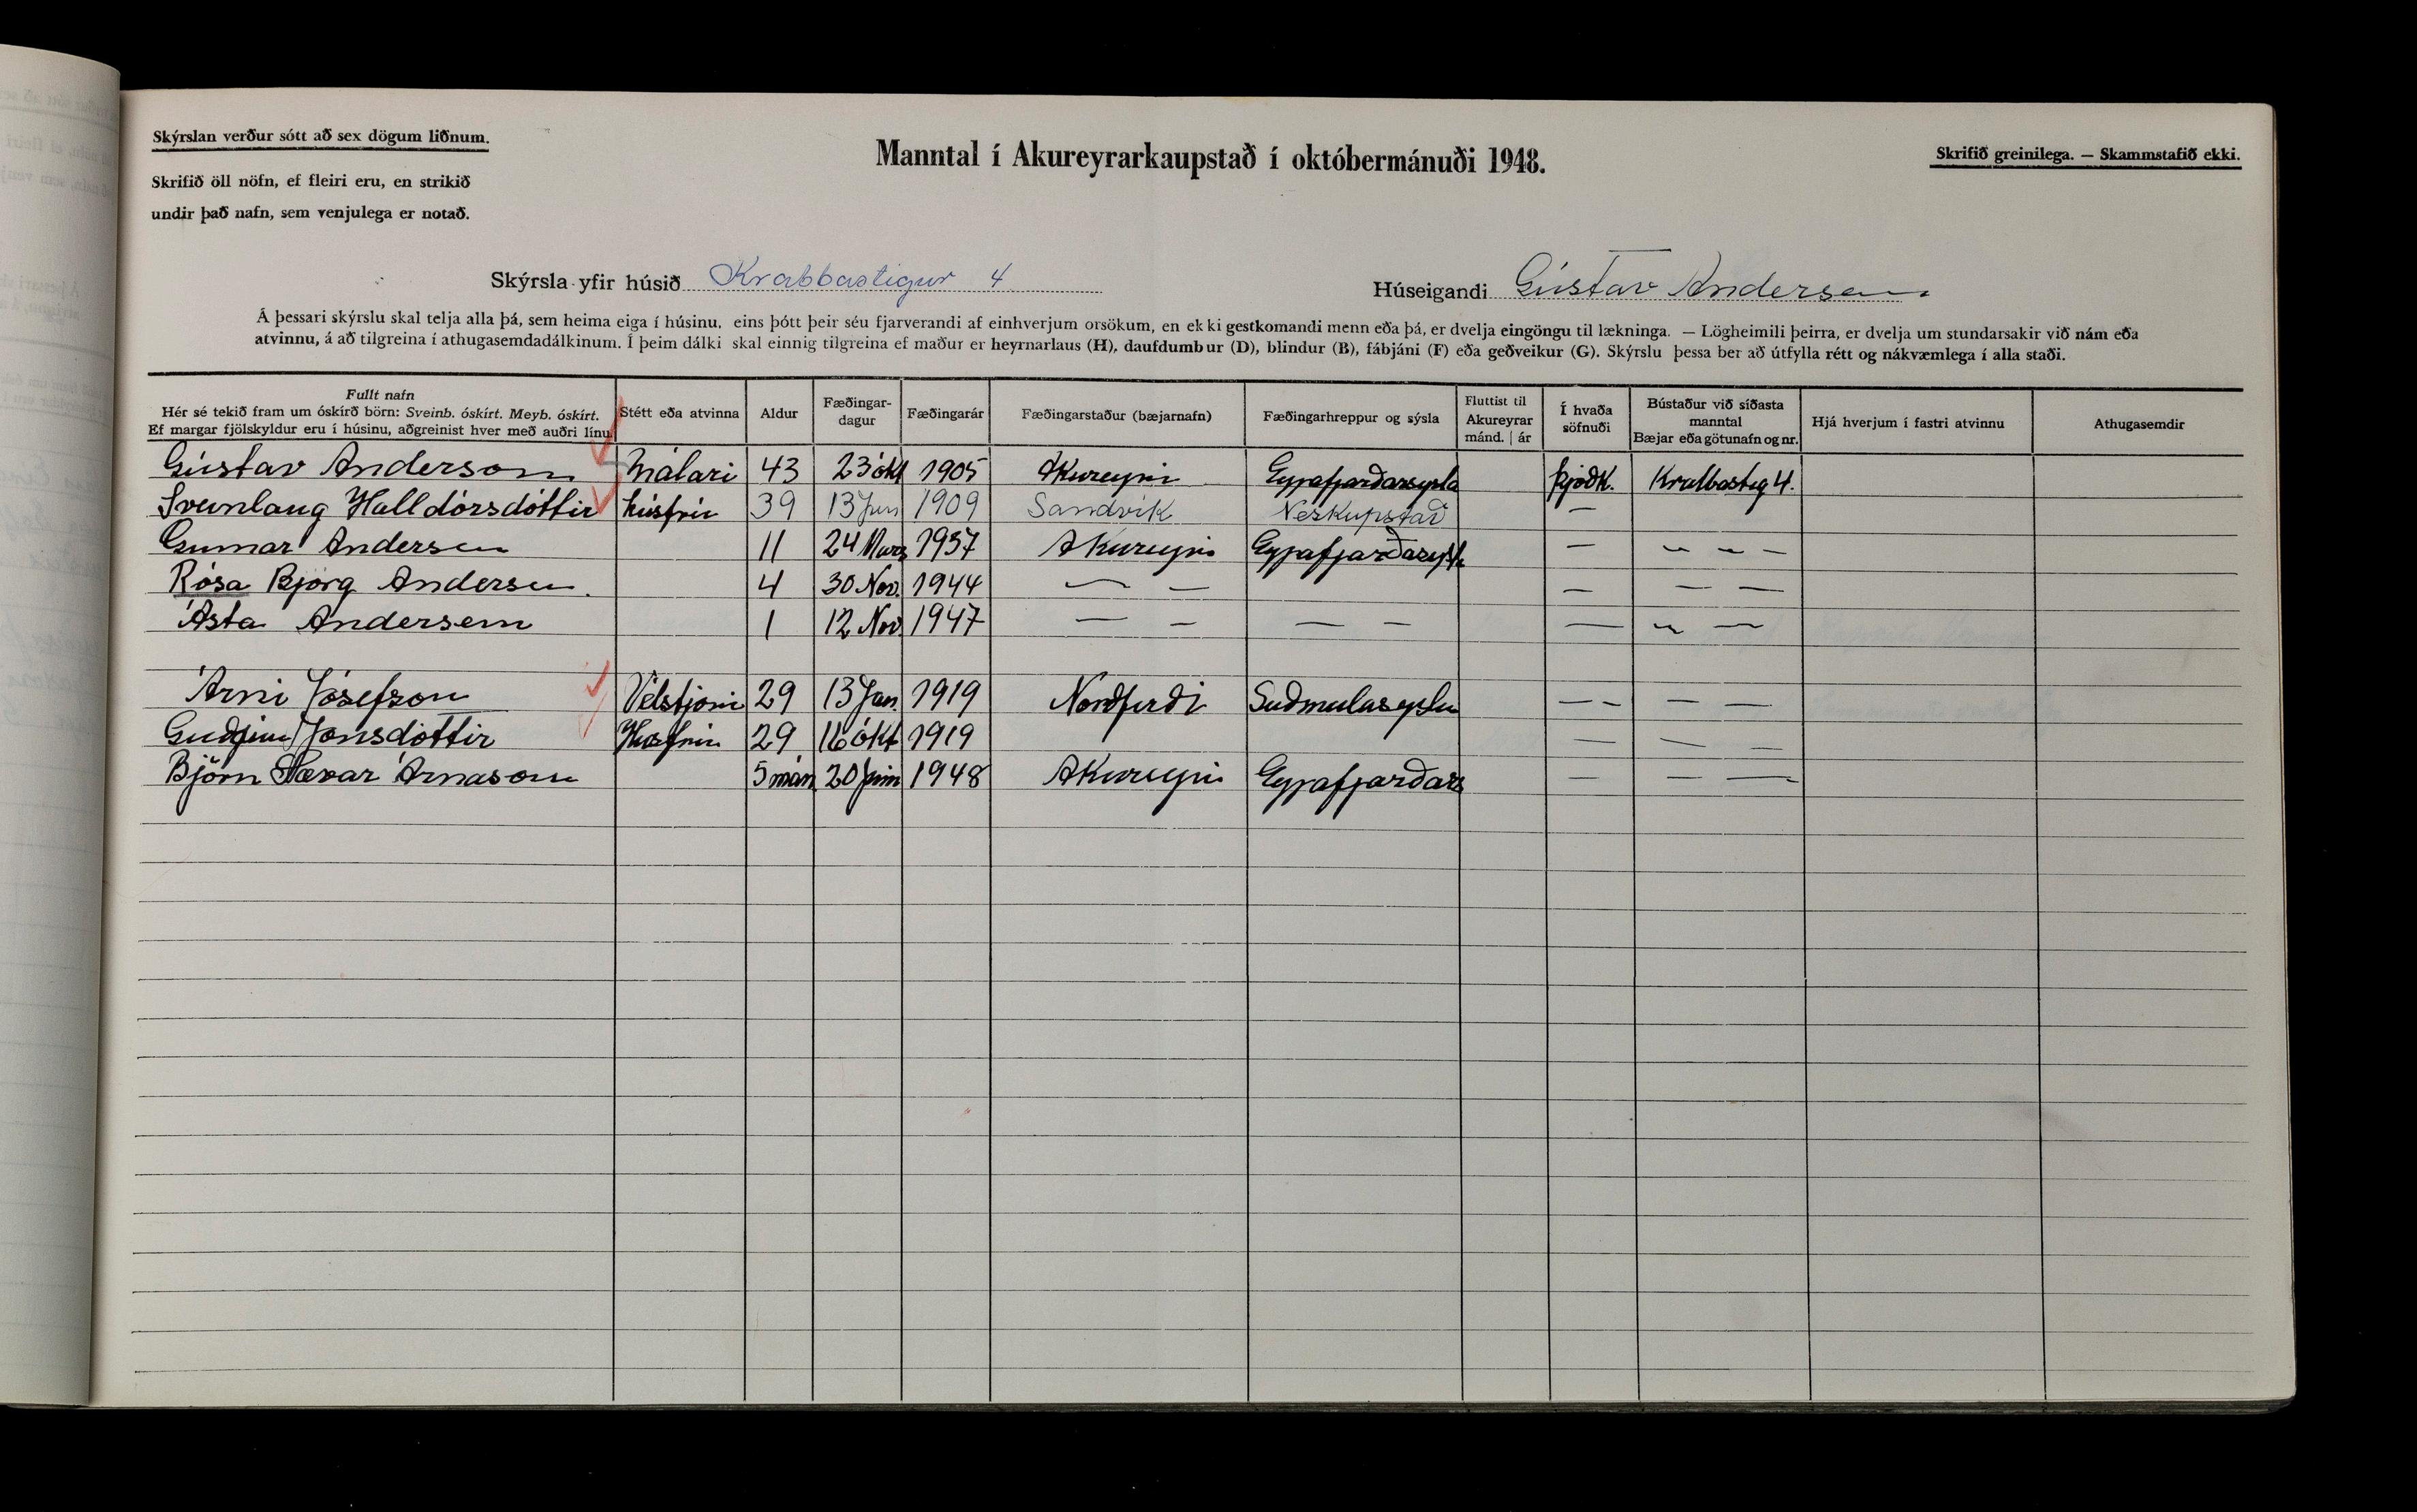 Skýrslan verður sótt að sex dögum liðnum.
Skrifið öll nöfn, ef fleiri eru, en strikið
undir það nafn, sem venjulega er notað.
Manntal í Akureyrarkaupstað í októbermánuði 1948.
Skrifið greinilega. — Skammstafið ekki.
Skýrsla yfir húsið Krabbastigur 4
Húseigandi Gústav Andersen
Á þessari skýrslu skal telja alla þá, sem heima eiga í húsinu, eins þótt þeir séu fjarverandi af einhverjum orsökum, en ekki gestkomandi menn eða þá, er dvelja eingöngu til lækninga. — Lögheimili þeirra, er dvelja um stundarsakir við nám eða
atvinnu, á að tilgreina í athugasemdadálkinum. Í þeim dálki skal einnig tilgreina ef maður er heyrnarlaus (H), daufdumbur (D), blindur (B), fábjáni (F) eða geðveikur (G). Skýrslu þessa ber að útfylla rétt og nákvæmlega í alla staði.
Fullt nafn
Hér sé tekið fram um óskírð börn: Sveinb. óskírt. Meyb. óskírt.
Ef margar fjölskyldur eru í húsinu, aðgreinist hver með auðri línu
Stétt eða atvinna
Aldur
Fæðingar-
dagur
Fæðingarár
Fæðingarstaður (bæjarnafn)
Fæðingarhreppur og sýsla
Fluttist til
Akureyrar
mánd. | ár
Í hvaða
söfnuði
Bústaður við síðasta
manntal
Bæjar eða götunafn og nr.
Hjá hverjum í fastri atvinnu
Athugasemdir
Gústav Anderson Málari 43 23 ókt 1905 Akureyri Eyjafjarðarsysla þjóðk. Krabbastig 4.
Sveinlaug Halldórsdóttir húsfrú 39 13 Jun 1909 Sandvík Neskupstað —
Gunnar Andersen 11 24 Mars 1937 Akureyri Eyjafjarðarsysla — — — —
Rósa Björg Andersen. 4 30 Nov. 1944 — — — — —
Ásta Andersen 1 12 Nov 1947 — — — — — — —
Árni Jósefson Vélstjóri 29 13 Jan. 1919 Norðfirði Suðmulasyslu — - — —
Guðfinna Jónsdóttir Húsfrú 29 16 ókt 1919 — — —
Björn Sævar Árnason 5 mán 20 Júni 1948 Akureyri Eyjafjarðars — — —